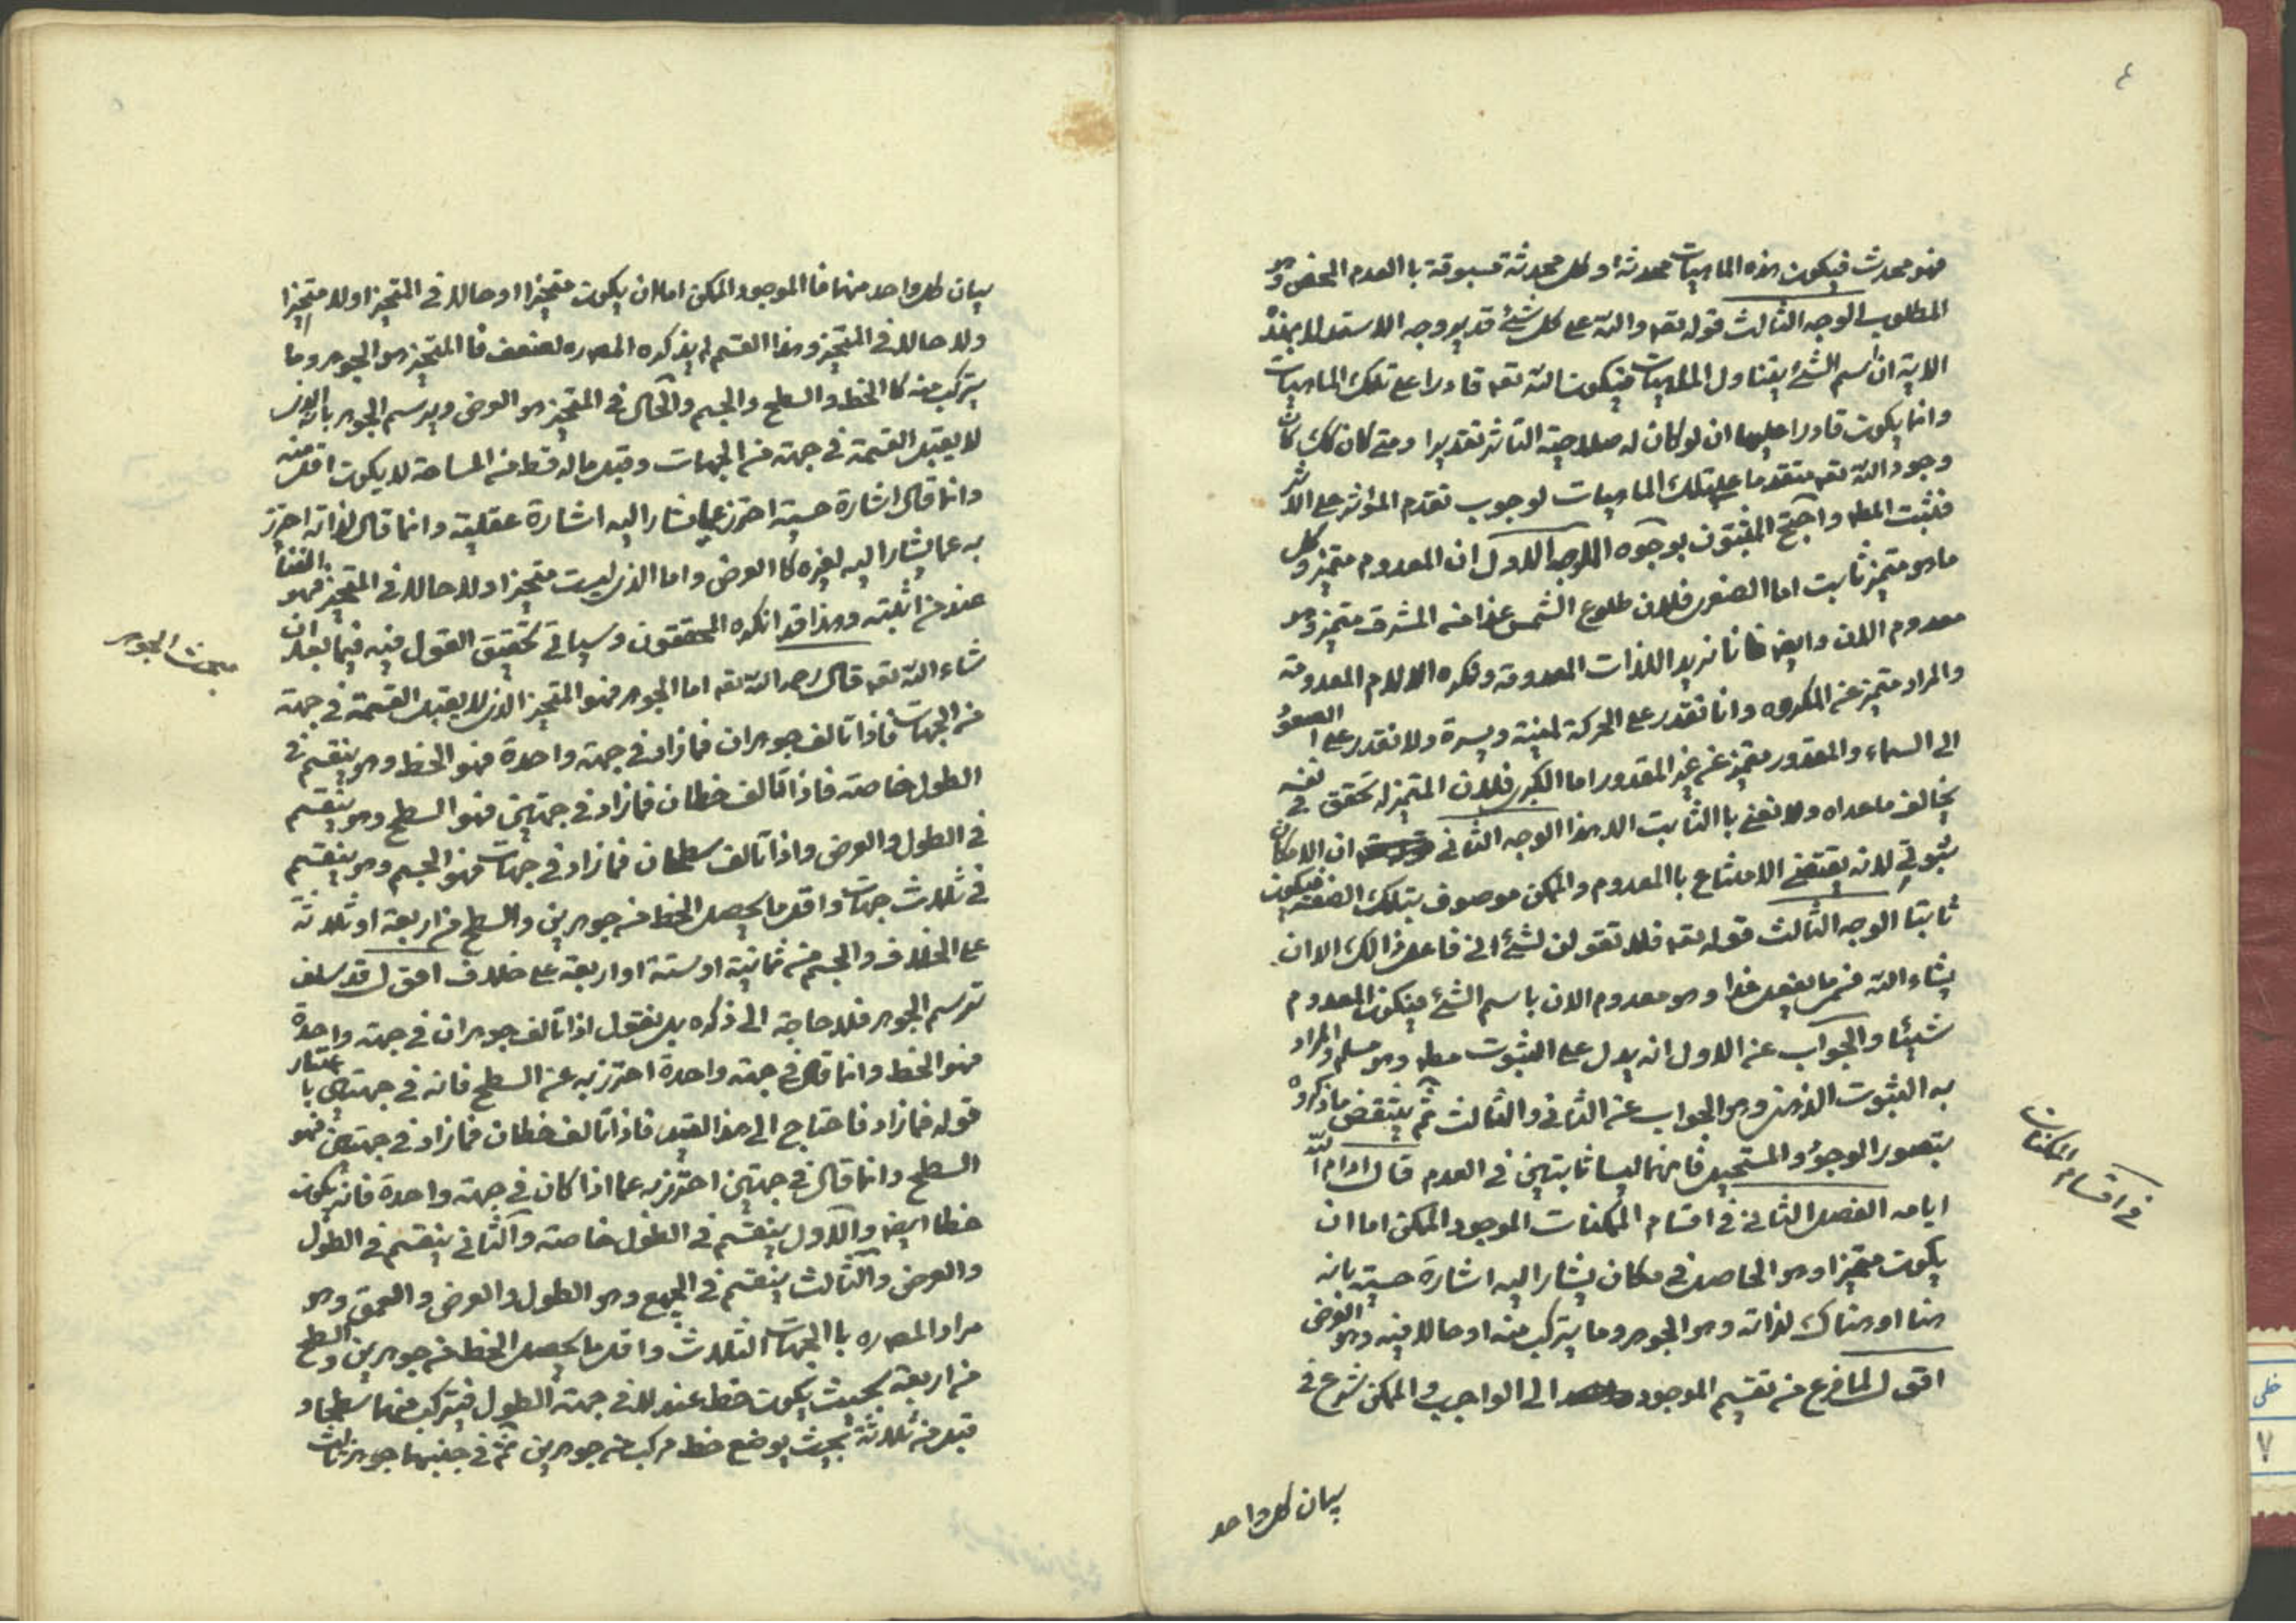 ٤
فهو محدث فيكون هذه الماهيات محدثة وكل محدثة مسبوقة با العدم المحض وهو
المطلوب الوجه الثالث قوله تعه والله على كل شئ قدير وجه الاستدلال بهذه
الاية ان اسم الشئ يتناول الماهيات فيكون الله تعه قادرا على تلك الماهيات
وانما يكون قادرا عليها ان لو كان له صلاحية التاثير تقديرا ومتى كان كك كان
وجود الله تعه متقدما على تلك الماهيات لوجوب تقدم المؤثر على الاثر
فثبت المطه واحتج المثبتون بوجوه الوجه الاول ان المعدوم متميز وكل
ما هو متميز ثابت اما الصغرى فلان طلوع الشمس غدا من المشرق متميز وهو
معدوم الان وايضا فانا نريد اللذات المعدومة ونكره الالام المعدومة
والمراد متميز عن المكروه وانا نقدر على الحركة يمنية ويسرة ولا نقدر على الصعود
الى السماء والمقدور متميز عن غير المقدور اما الكبرى فلان المتميز له تحقق في نفسه
يخالف ما عداه ولا نعني با الثابت الا هذا الوجه الثاني ان الامكان
ثبوتي لانه يقتضي الامتناع با المعدوم والممكن موصوف بتلك الصفة فيكون
ثابتا الوجه الثالث قوله تعه فلا تقولن لشئ اني فاعل ذالك الا ان
يشاء الله فسمى ما يفعل غدا وهو معدوم الان باسم الشئ فيكون المعدوم
شيئا والجواب عن الاول انه يدل على الثبوت مطه وهو مسلم والمراد
به الثبوت الذهني وهو الجواب عن الثاني والثالث ثم ينتقض ما ذكروه
بتصور الوجود والمستحيل فانهما ليسا ثابتين في العدم قال ادام الله
ايامه الفصل الثاني في اقسام الممكنات الموجود الممكن اما ان
يكون متحيزا وهو الحاصل في مكان يشار اليه اشارة حسية بانه
هنا او هناك لذاته وهو الجوهر وما يتركب منه او حالا فيه وهو العرض
اقول لما فرغ من تقسيم الموجود الى الواجب والممكن شرع في
بيان كل واحد
في اقسام الممكنات
بيان كل واحد منهما فا الموجود الممكن اما ان يكون متحيزا او حالا في المتحيز او لا متحيزا
ولا حالا في المتحيز وهذا القسم لم يذكره المصره لضعف فا المتحيز هو الجوهر وما
يتركب منه كا الخط والسطح والجسم والحال في المتحيز هو العرض ويرسم الجوهر بانه الذي
لا يقبل القسمة في جهة من الجهات وقيل ما له قسط من المساحة لا يكون اقل منه
وانما قال اشارة حسية احترز عما يشار اليه اشارة عقلية وانما قال لذاته احترز
به عما يشار اليه لغيره كا العرض واما الذي ليست متحيزا ولا حالا في المتحيز فهو النفس
عند من اثبته وهذا قد انكره المحققون وسياتي تحقيق القول فيه فيما بعد ان
شاء الله تعه قال رحمه الله تعه اما الجوهر فهو المتحيز الذي لا يقبل القسمة في جهة
من الجهات فاذا تالف جوهران فما زاد في جهة واحدة فهو الخط وهو ينقسم في
الطول خاصة فاذا تالف خطان فما زاد في جهتين فهو السطح وهو ينقسم
في الطول والعرض واذا تالف سطحان فما زاد في جهات فهو الجسم وهو ينقسم
في ثلاث جهات واقل ما يحصل الخط من جوهرين والسطح من اربعة او ثلاثة
على الخلاف والجسم من ثمانية او ستة او اربعة على خلاف اقول قد سلف
ترسم الجوهر فلا حاجة الى ذكره بل نقول اذا تالف جوهران في جهة واحدة
فهو الخط وانما قال في جهة واحدة احترز به عن السطح فانه في جهتين با عتبار
قوله فما زاد فاحتاج الى هذا القيد فاذا تالف خطان فما زاد في جهتين فهو
السطح وانما قال في جهتين احترز به عما اذا كان في جهة واحدة فانه يكون
خطا ايضا والاول ينقسم في الطول خاصة والثاني ينقسم في الطول
والعرض والثالث ينقسم في الجميع وهو الطول والعرض والعمق وهو
مراد المصره با الجهات الثلاث واقل ما يحصل الخط من جوهرين والسطح
من اربعة بحيث يكون خط عند في جهة الطول فيتركب منهما سطحا و
قيل من ثلاثة بحيث يوضع خط مركب من جوهرين ثم في جنبهما جوهر ثالث
مبحث الجوهر
خطى
٧